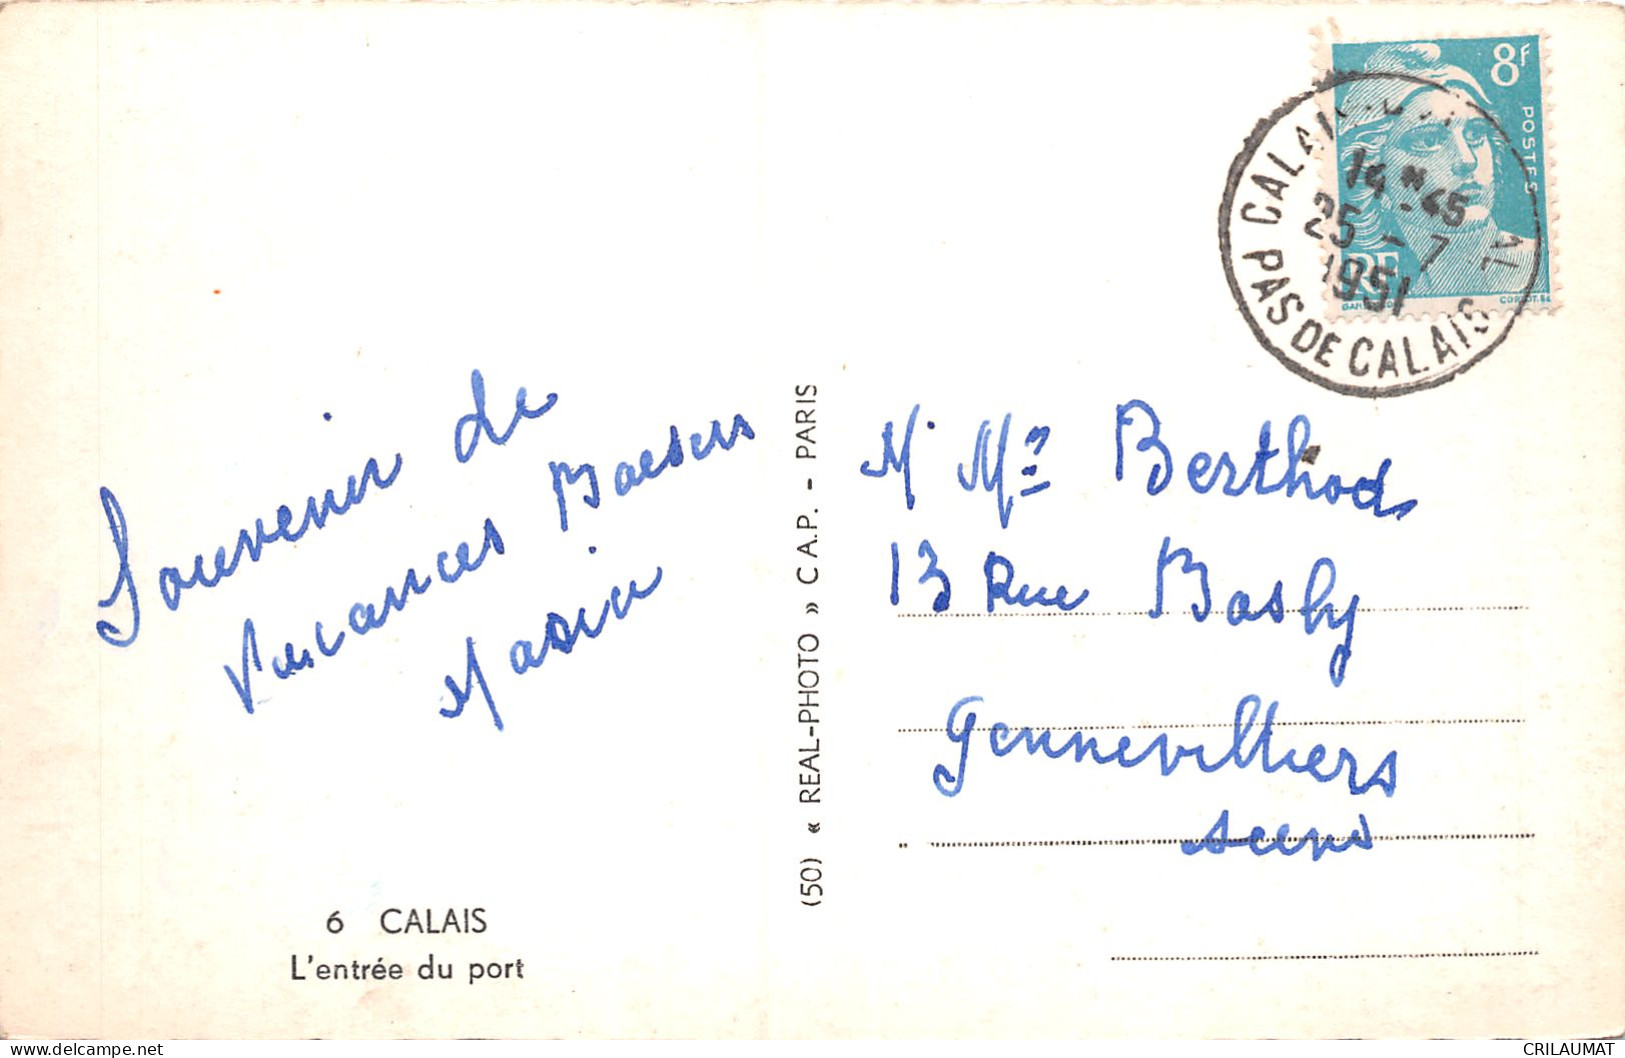 Souvenir de
Vacances Baesers
6 CALAIS
L'entrée du port
(50) « REAL-PHOTO » C.A.P. - PARIS
8F
POSTES
RF
CALAIS
14 H 45
25 - 7
1951
PAS DE CALAIS
M. Mme Berthod
13 Rue Bashy
Gennevilliers
seine
www.delcampe.net
CRILAUMAT